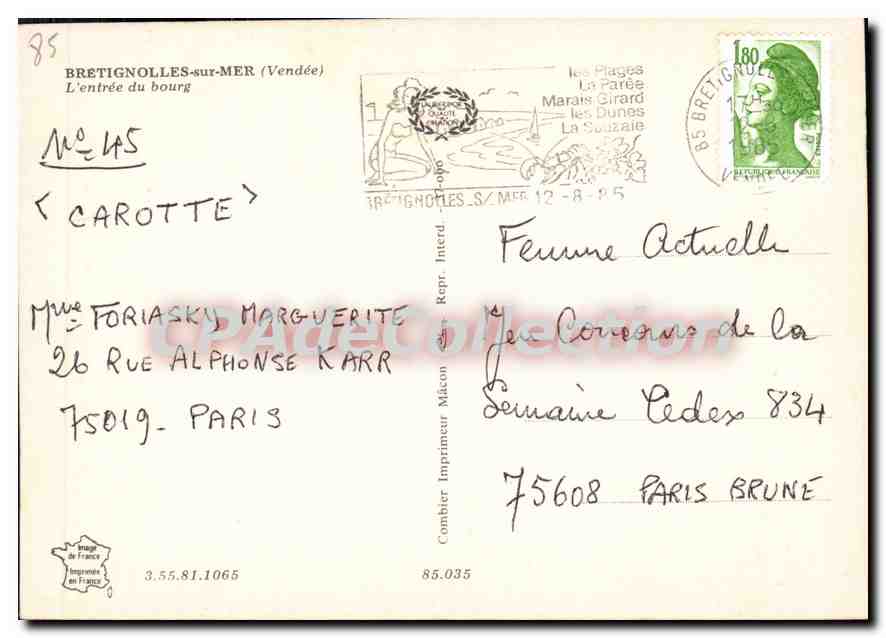 85
BRETIGNOLLES-sur-MER (Vendée)
L'entrée du bourg
N° 45
< CAROTTE >
Mme FORIASKY MARGUERITE
26 RUE ALPHONSE KARR
75019 - PARIS
Image
de France
Imprimée
en France
3.55.81.1065
85.035
Combier Imprimeur Mâcon Repr. Interd.
les Plages
La Parée
Marais Girard
les Dunes
La Sauzaie
QUALITÉ
BRÉTIGNOLLES S/ MER 12-8-85
1,80
85 BRETIGNOLLES
1985
REPUBLIQUE FRANÇAISE
Femme Actuelle
Jeu Concours de la
Semaine Cedex 834
75608 PARIS BRUNE
CPAdeCollection